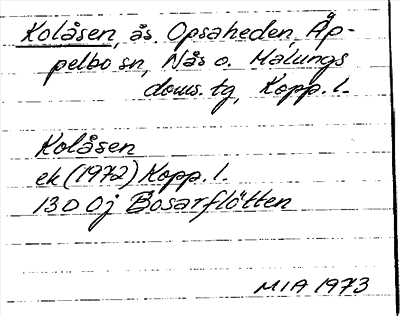 Kolåsen, ås. Opsaheden, Äp-
pelbo sn, Nås o. Malungs
doms. tg, Kopp. l.
Kolåsen
ek (1972) Kopp. l.
13D 0j Bosarflötten
MIA 1973